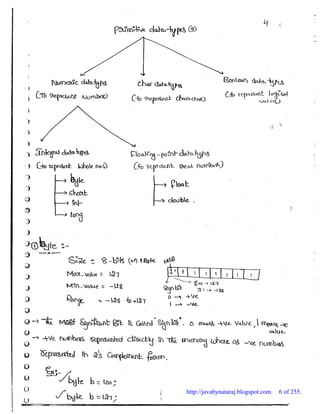 4
Primitive data-types (8)
Numeric datatypes
(To represent numbers)
char datatypes
(to represent characters)
Boolean data-types
(to represent logical values)
Integral datatypes
(to represent whole no's)
Floating-point datatypes
(to represent real numbers)
→ byte
→ short
→ int
→ long
→ float
→ double.
① byte :-
Size = 8-bits (or) 1 Byte
MSB
1 1 1 1 1 1 1
Sign bit
0 → +ve
1 → -ve
Max.value = 127
Min.value = -128
Range = -128 to +127
→ The Most Significant Bit is called "Sign bit". 0 means +ve value, 1 means -ve value.
→ +ve numbers represented directly in the memory where as -ve numbers
represented in 2's complement form.
Ex:-
✓ byte b = 100;
✓ byte b = 127;
http://javabynataraj.blogspot.com 6 of 255.